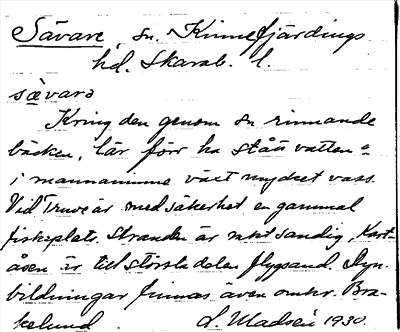 Sävare, sn. Kinnefjärdings
hd. Skarab. l.
sævarə
Kring den genom sn rinnande
bäcken, lär förr ha stått vatten o
i mannaminne växt mycket vass.
Vid Truve är med säkerhet en gammal
fiskeplats. Stranden är mkt sandig,
åsen är till största delen flygsand. Dyn-
bildningar finnas även omkr. Bra-
kelund. 1930.